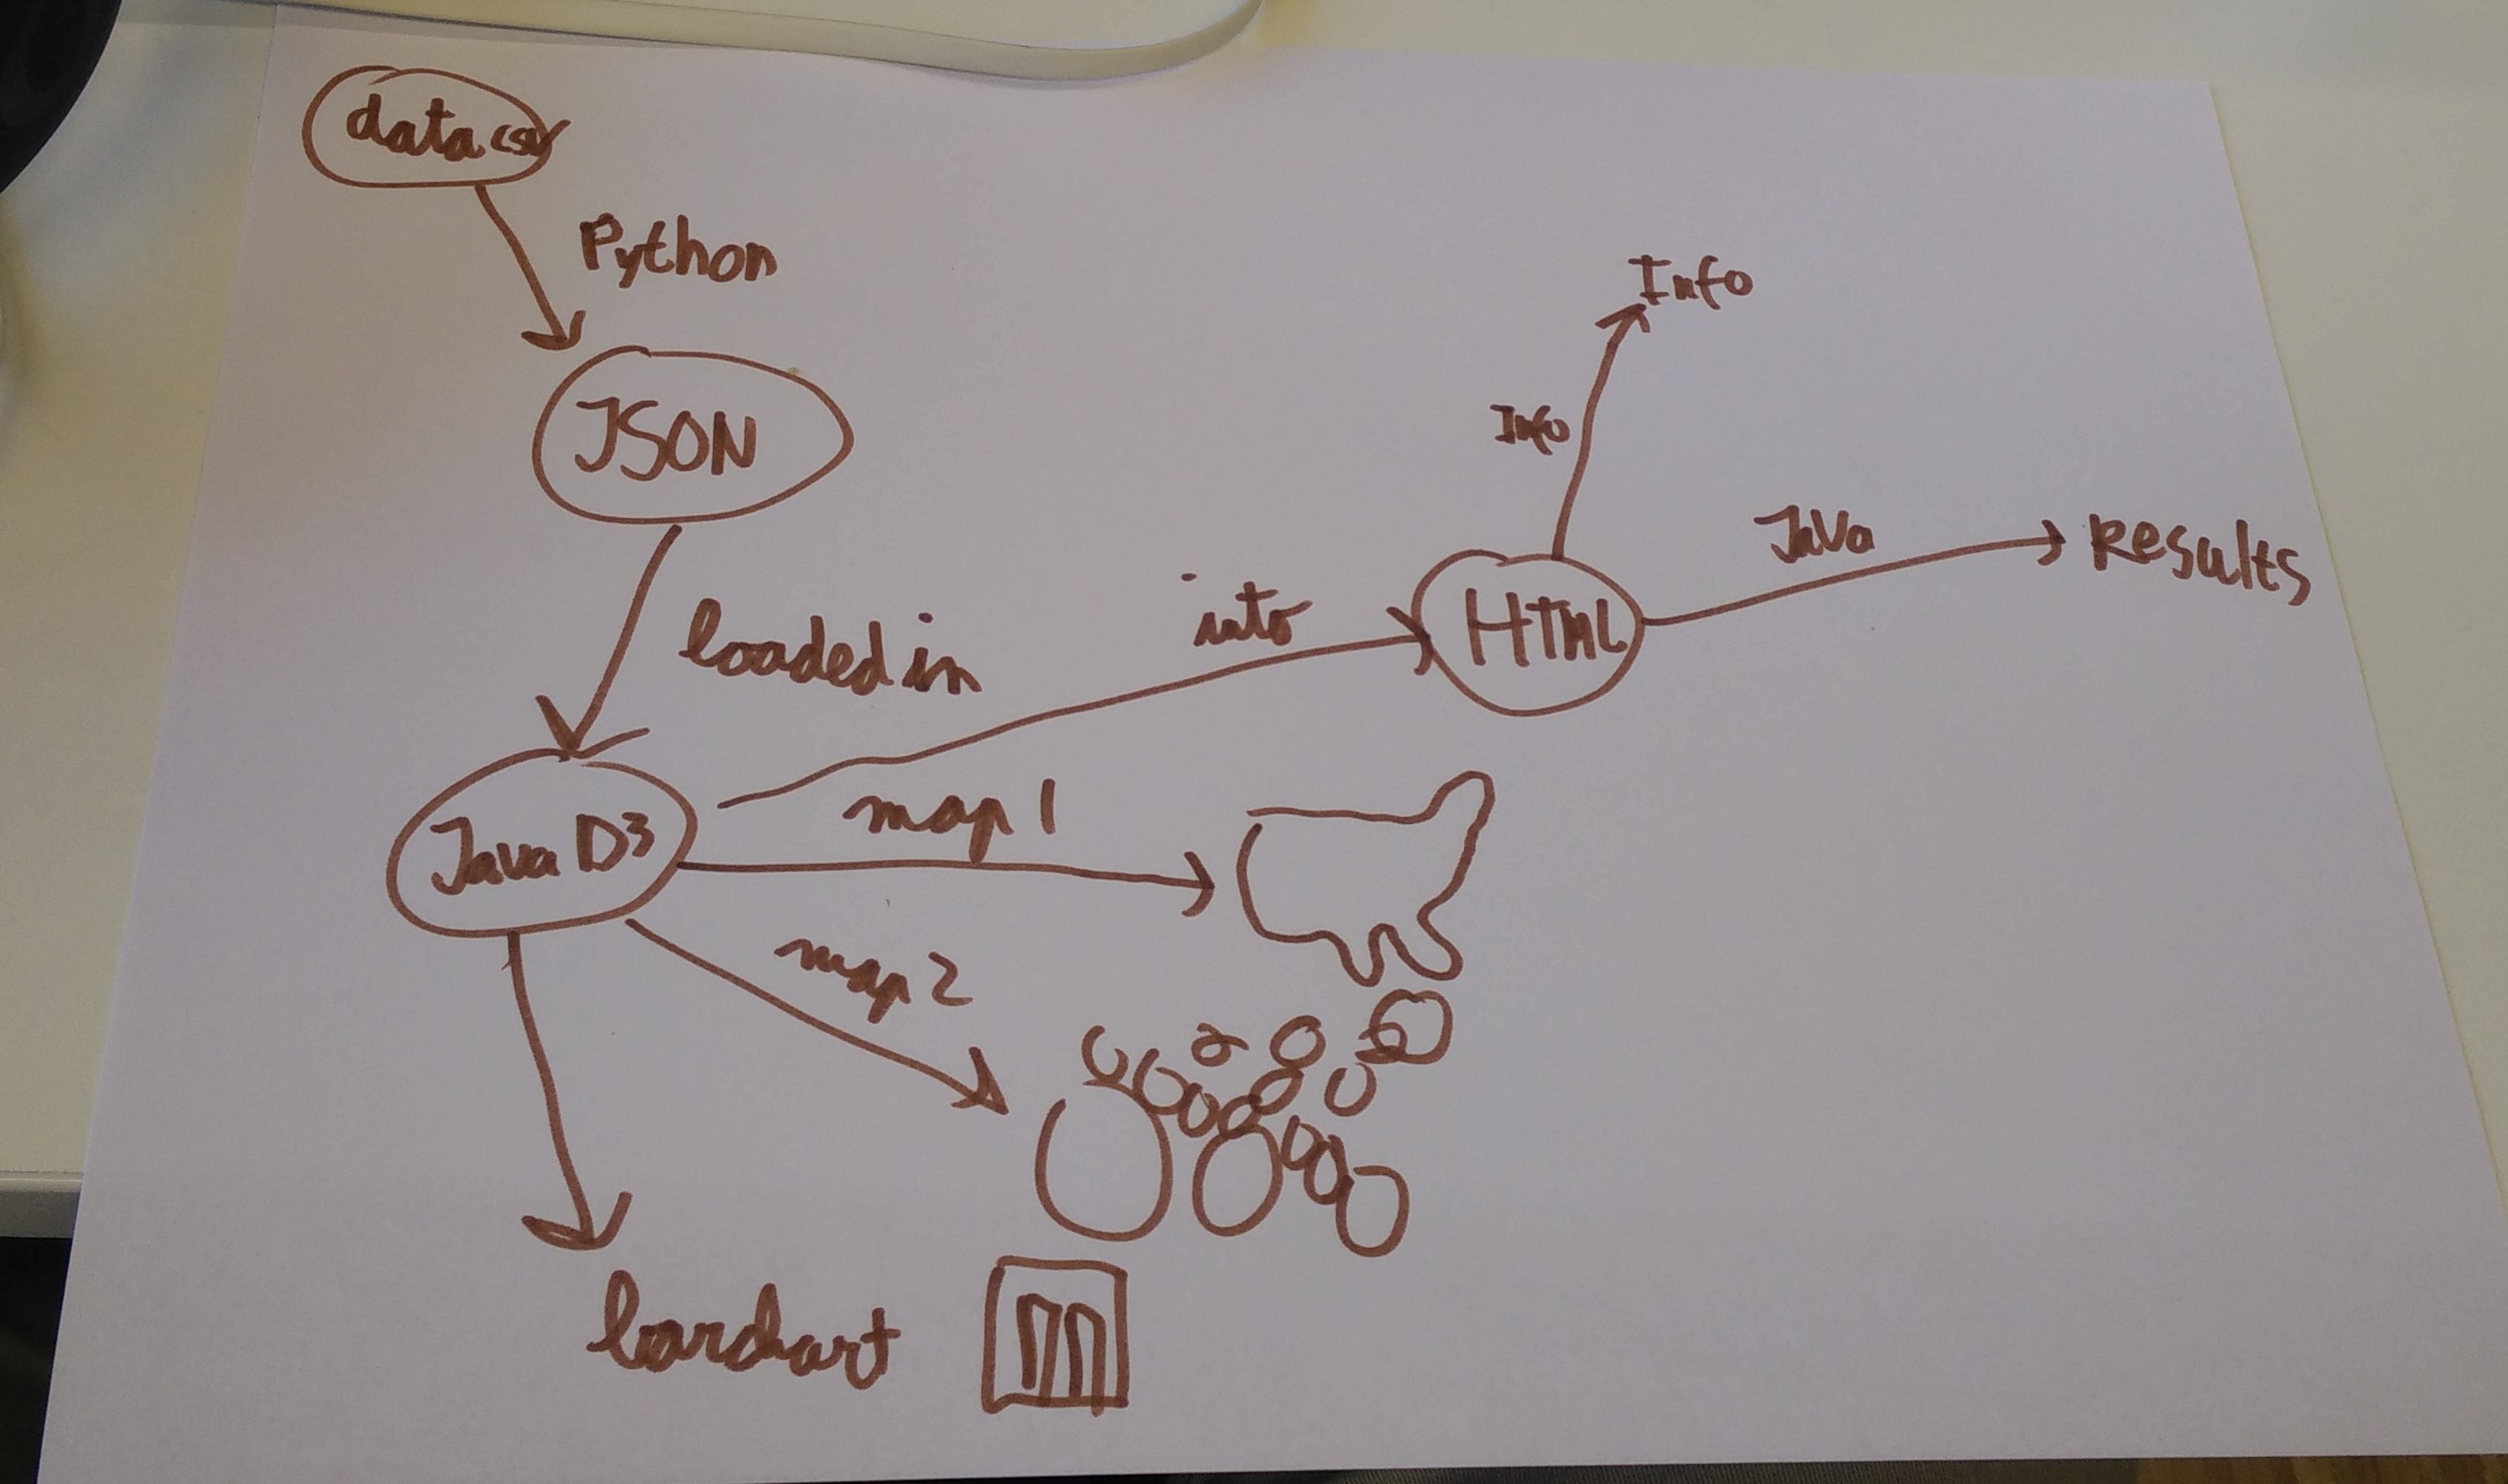 data csv
Python
JSON
loaded in
Java D3
into
HTML
Info
Info
Java
Results
map 1
map 2
barchart